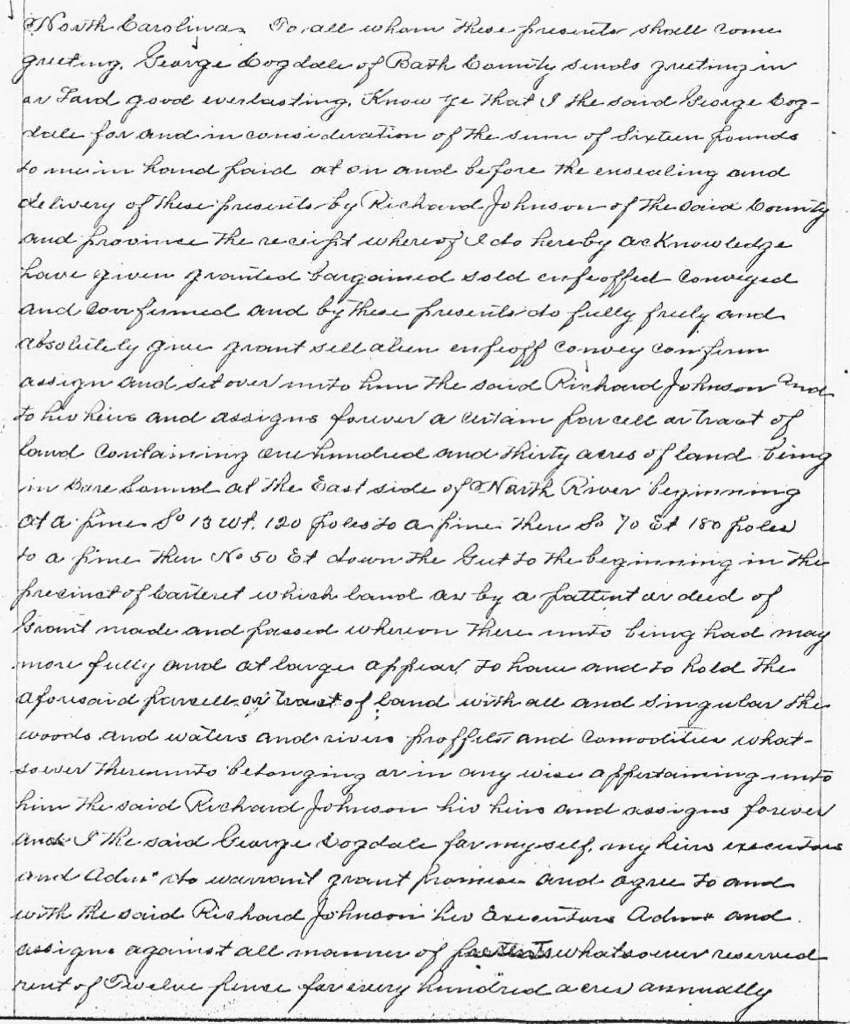 North Carolina. To all whom these presents shall come
greeting. George Cogdale of Bath County sends greeting in
or Lord good everlasting. Know ye that I the said George Cog-
dale for and in consideration of the sum of Sixteen pounds
to me in hand paid at on and before the ensealing and
delivery of these presents by Richard Johnson of the said County
and province the receipt whereof I do hereby acknowledge
have given granted bargained sold enfeoffed conveyed
and confirmed and by these presents do fully freely and
absolutely give grant sell alien enfeoff convey confirm
assign and set over unto him the said Richard Johnson and
to his heirs and assigns forever a certain parcell or tract of
land containing one hundred and thirty acres of land being
in Core Sound at the East side of North River beginning
at a pine So 13 Wt. 120 poles to a pine then So 70 Et 180 poles
to a pine then No 50 Et down the Gut to the beginning in the
precinct of Carteret which land as by a pattent or deed of
Grant made and passed whereon there unto being had may
more fully and at large appear. To have and to hold the
aforesaid parcell or tract of land with all and singular the
woods and waters and rivers proffits and comodities what-
soever thereunto belonging or in any wise appertaining unto
him the said Richard Johnson his heirs and assigns forever
and I the said George Cogdale for myself, my heirs executors
and Admrs do warrant grant promise and agree to and
with the said Richard Johnson his Executors Admrs and
assigns against all manner of whatsoever reserved
rent of Twelve pence for every hundred acres annually